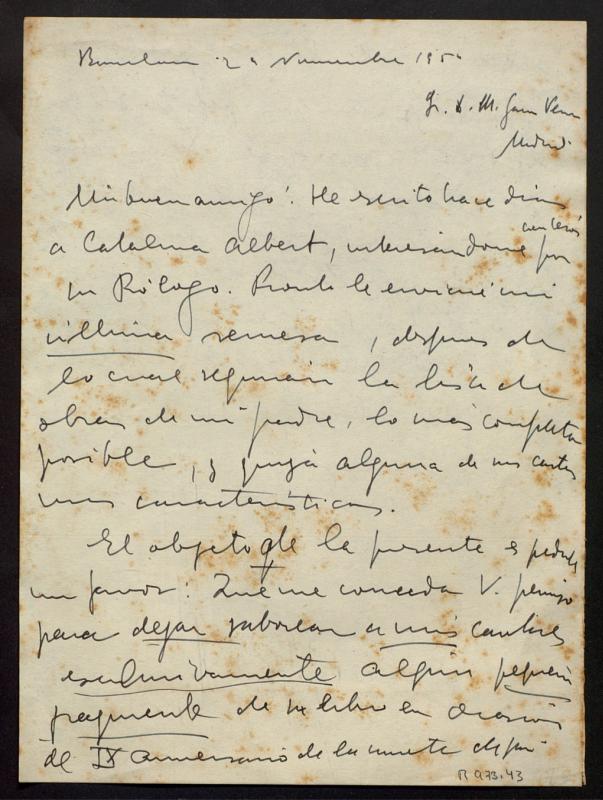 Barcelona 2 Noviembre 195
Sr. D. M.
Madrid.
Mi buen amigo: He escrito hace días
a Catalina Albert, interesándome por
su Prólogo. Pronto le enviaré mi
última remesa, despues de
lo cual seguirán la lista de
obras de mi padre, lo más completa
posible, y quizá alguna de sus cartas
mas características.
El objeto de la presente es pedirle
un favor: Que me conceda V. permiso
para dejar saborear a mis
exclusivamente algún pequeño
fragmento de su libro en ocasión
del IX aniversario de la muerte de mi
R 973.43